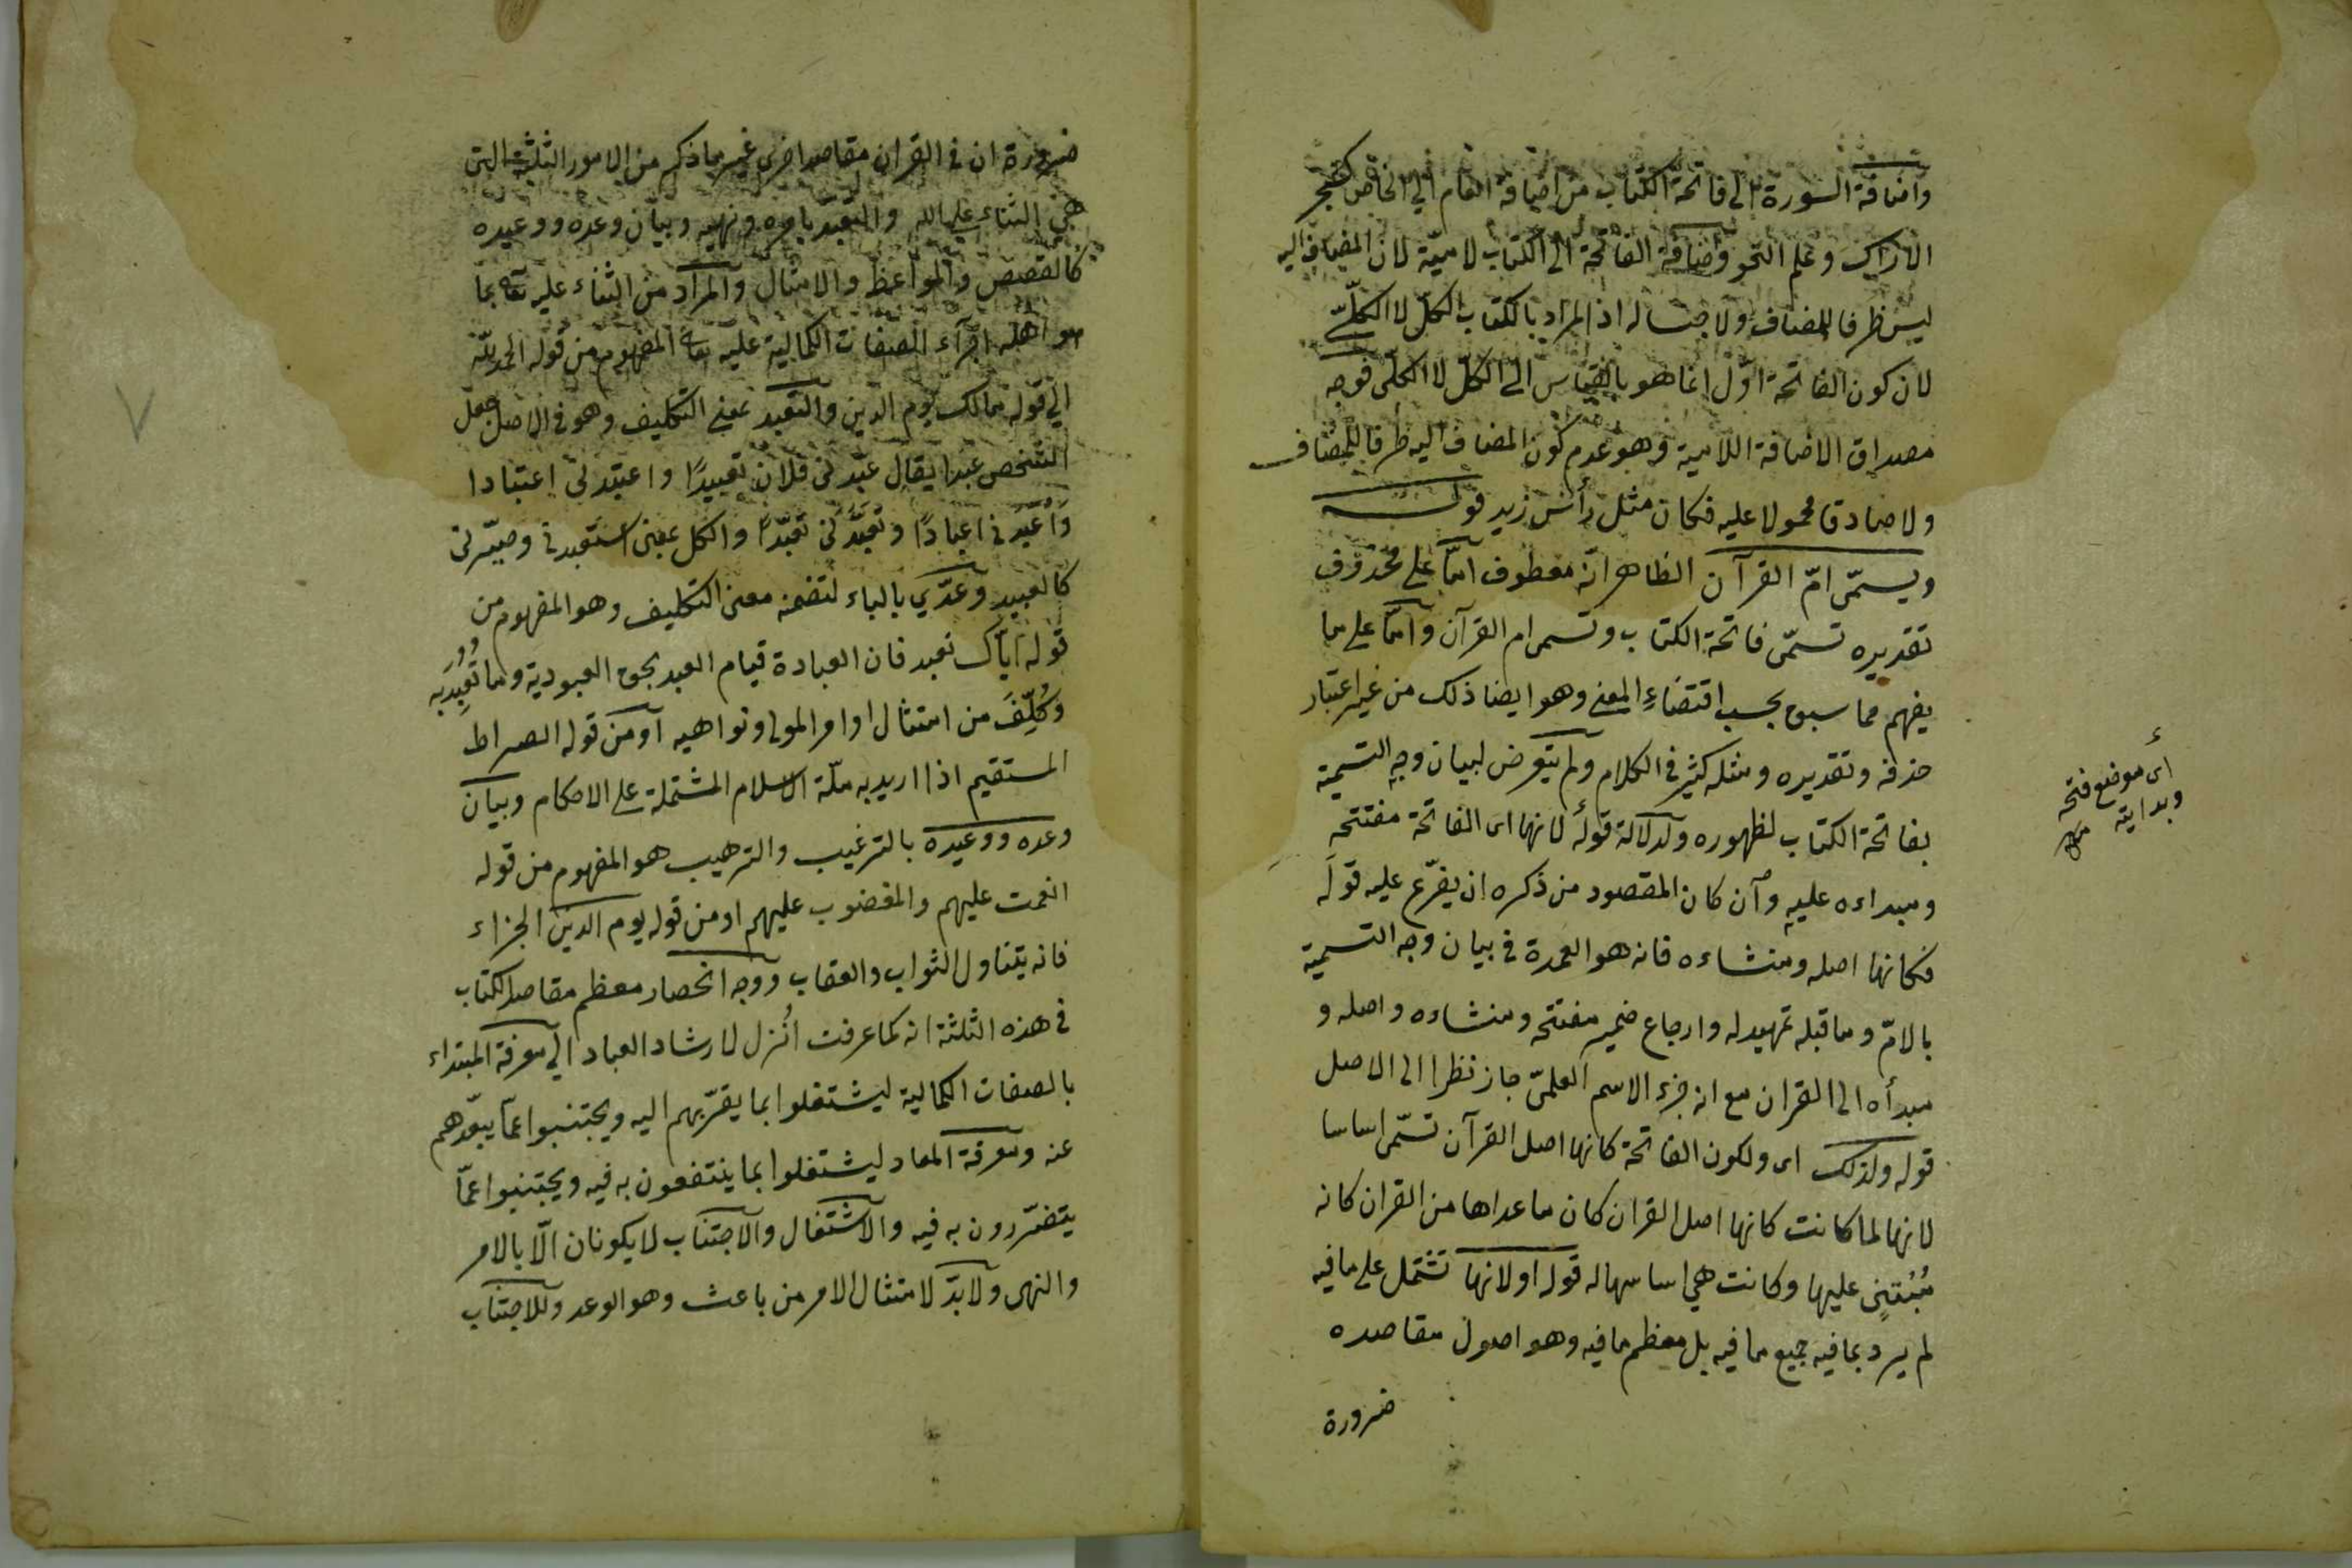 واضافة السورة الى فاتحة الكتاب من اضافة العام الى الخاص كشجر
الاراك وعلم النحو واضافة الفاتحة الى الكتاب لاميّة لان المضاف اليه
ليس ظرفا للمضاف ولا جنسا له اذ المراد بالكتاب الكلّ لا الكلّىّ
لان كون الفاتحة اوّل انما هو بالقياس الى الكلّ لا الكلّى فوجد
مصداق الاضافة اللامية وهو عدم كون المضاف اليه ظرفا للمضاف
ولا صادقا محمولا عليه فكان مثل رأس زيد قوله
ويسمّى امّ القرآن الظاهر انّه معطوف امّا على محذوف
تقديره تسمّى فاتحة الكتاب وتسمى ام القرآن وامّا على ما
يفهم مما سبق بحسب اقتضاءِ المعنى وهو ايضا ذلك من غير اعتبار
حذفه وتقديره ومثله كثير فى الكلام ولم يتعرض لبيان وجه التسمية
بفاتحة الكتاب لظهوره ولدلالة قوله لانها اى الفاتحة مفتتحه
ومبداءه عليه وآن كان المقصود من ذكره ان يفرّع عليه قوله
فكانها اصله ومنشاءه فانه هو العمدة فى بيان وجه التسمية
بالامّ وما قبله تمهيد له وارجاع ضمير مفتتحه ومنشاءه واصله و
مبدأه الى القران مع انه جزء الاسم العلمىّ جاز نظرا الى الاصل
قوله ولذلك اى ولكون الفاتحة كانها اصل القرآن تسمّى اساسا
لانها لما كانت كانها اصل القران كان ما عداها من القران كانه
مُبْتنٍى عليها وكانت هي اساسها له قوله او لانها تشتمل على ما فيه
لم يرد بما فيه جميع ما فيه بل معظم ما فيه وهو اصول مقاصده
ضرورة
اى موضع فتحه
وبدايته
ضرورة ان فى القران مقاصد اخرى غير ما ذكر من الامور الثلثة التى
هي الثناء على الله والتعبّد بامره ونهيه وبيان وعده ووعيده
كالقصص والمواعظ والامثال والمراد من الثناء عليه تعالى بما
هو اهله اجرآء الصفات الكمالية عليه تعالى المفهوم من قوله الحمد للّه
الى قوله مالك يوم الدين والتعبد بمعنى التكليف وهو فى الاصل جعل
الشخص عبدا يقال عبّدنى فلان تعبيدًا واعتبدنى اعتبادا
وَأَعْبَدَنى اعبادًا وتعبّدنى تعبّدًا والكل بمعنى استعبدنى وصيّرنى
كالعبيد وعدّي بالباء لتضمنه معنى التكليف وهو المفهوم من
قوله ايّاك نعبد فان العبادة قيام العبد بحق العبودية وما تُعُبِّدَ به
وكُلِّفَ من امتثال اوامر المولى ونواهيه آو من قوله الصراط
المستقيم اذا اريد به ملّة الاسلام المشتملة على الاحكام وبيان
وعده ووعيده بالترغيب والترهيب هو المفهوم من قوله
انعمت عليهم والمغضوب عليهم او من قوله يوم الدين اى الجزاء
فانه يتناول الثواب والعقاب ووجه انحصار معظم مقاصد الكتاب
فى هذه الثلثة انه كما عرفت أنُزل لارشاد العباد الى معرفة المبتداء
بالصفات الكمالية ليشتغلوا بما يقرّبهم اليه ويجتنبوا عمّا يبعّدهم
عنه ومعرفة المعاد ليشتغلوا بما ينتفعون به فيه ويجتنبوا عمّا
يتضرّرون به فيه والآشتغال والآجتناب لا يكونان الّا بالامر
والنهى ولا بدّ لامتثال الامر من باعث وهو الوعد وللاجتناب